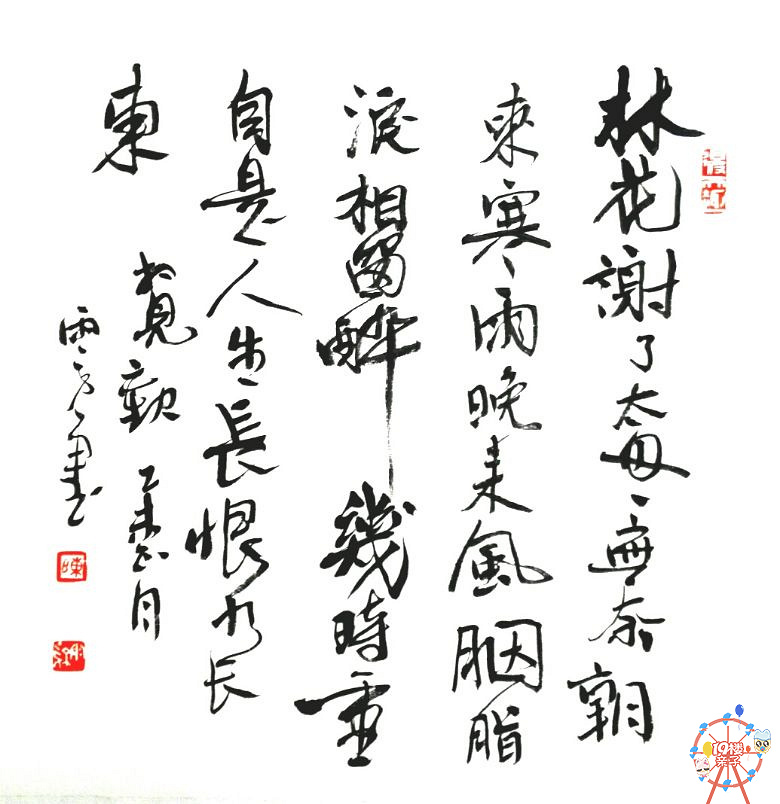 林花謝了太匆匆無奈朝
來寒雨晚来風胭脂
淚相留醉幾時重
自是人生長恨水长
東
乙未 月
書
陳
19楼
亲子